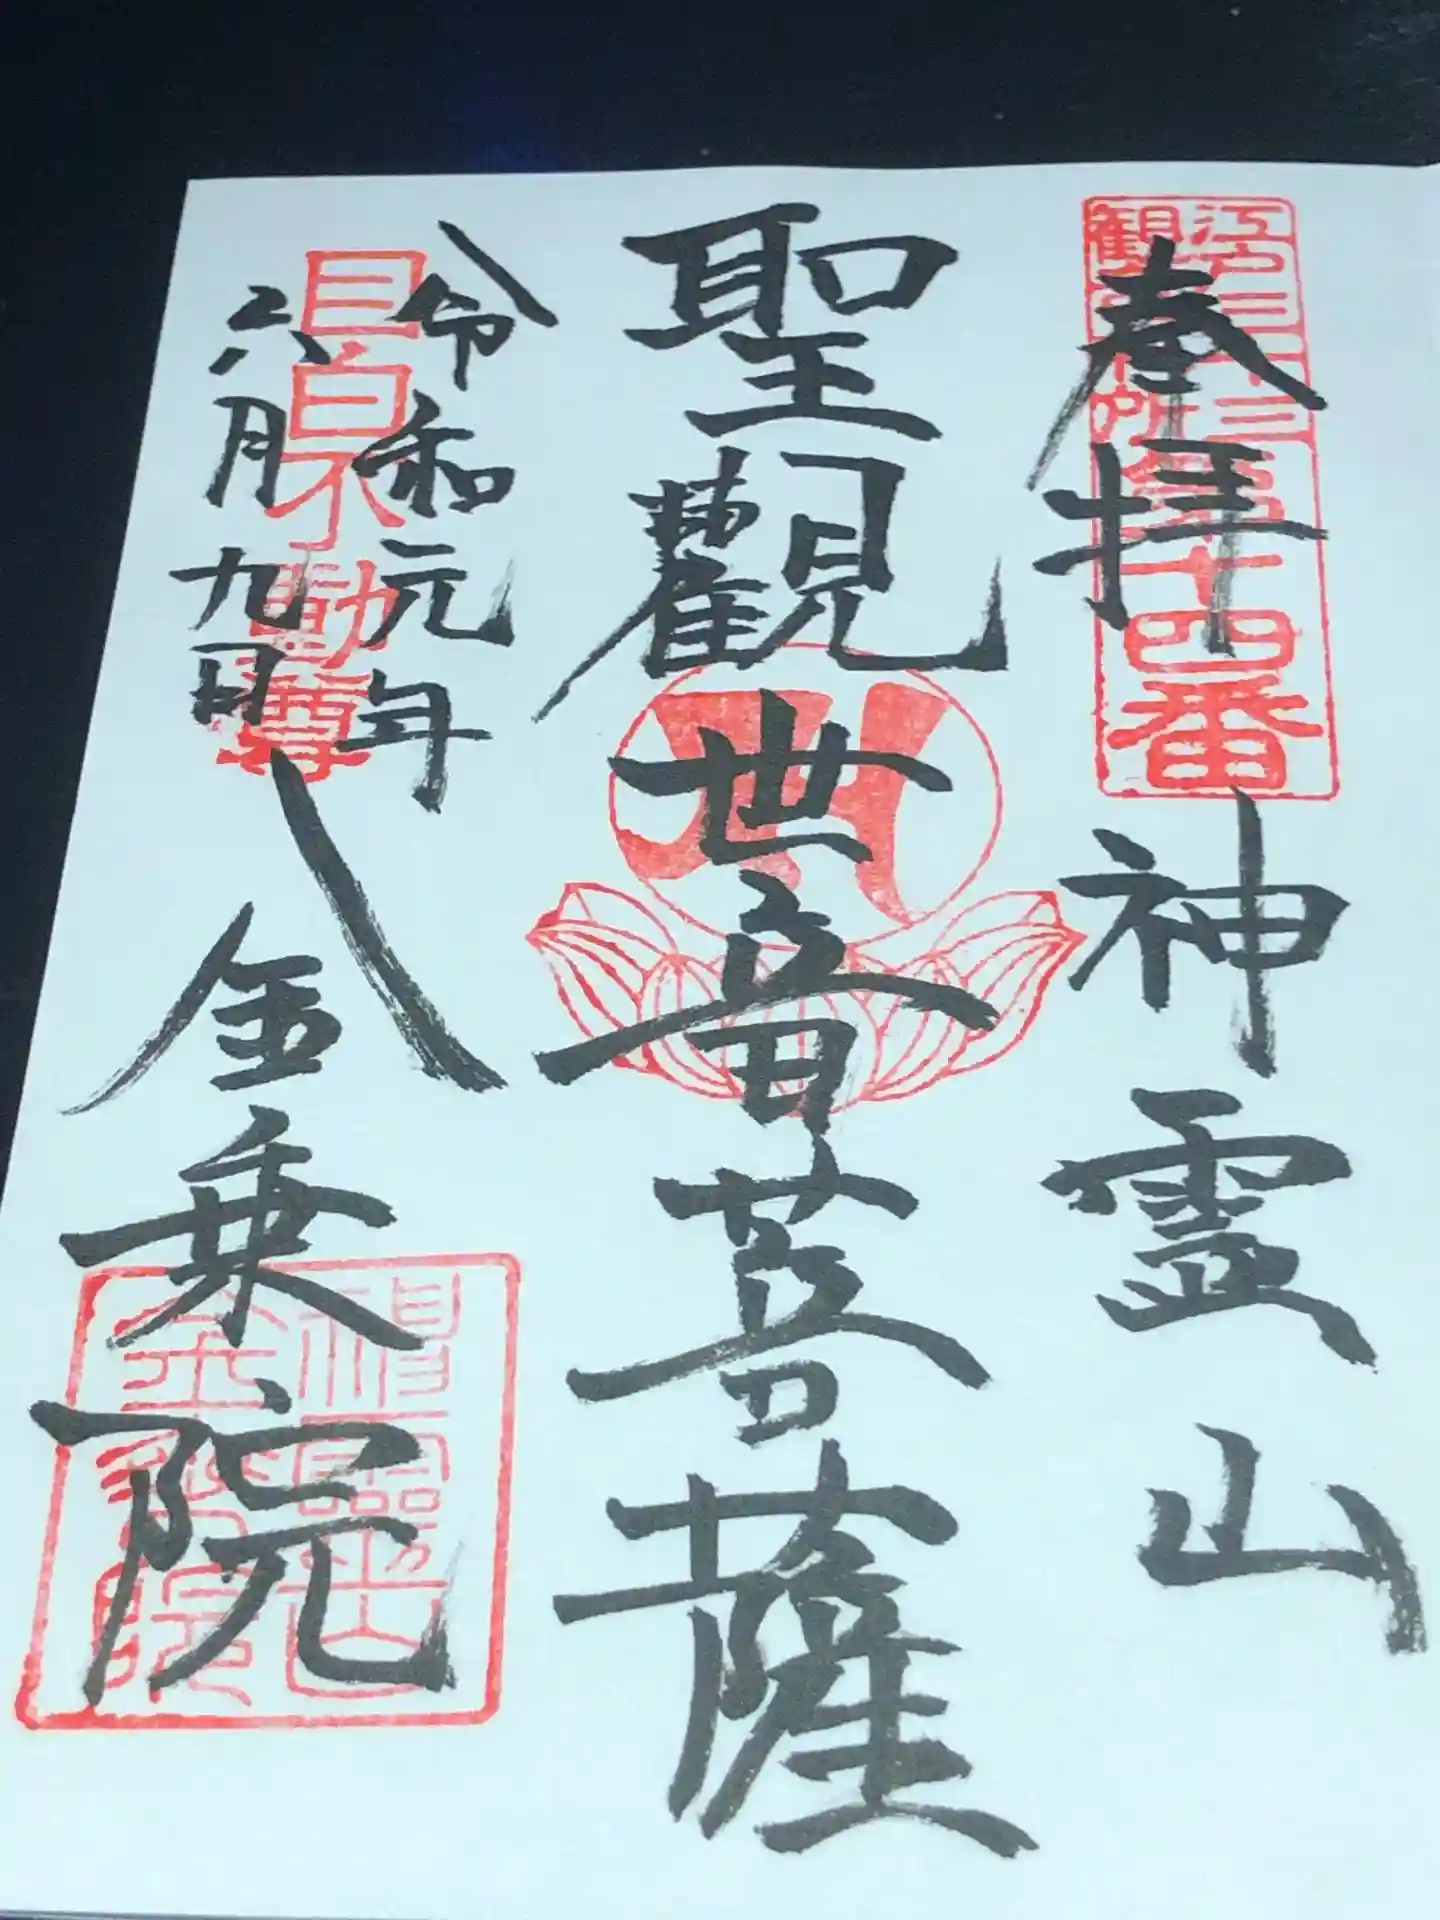 奉拝
江戸三十三
観音札所第十四番
神霊山
聖觀世音菩薩
令和元年
六月九日
目白不動尊
金乗院
神靈山
金乗院